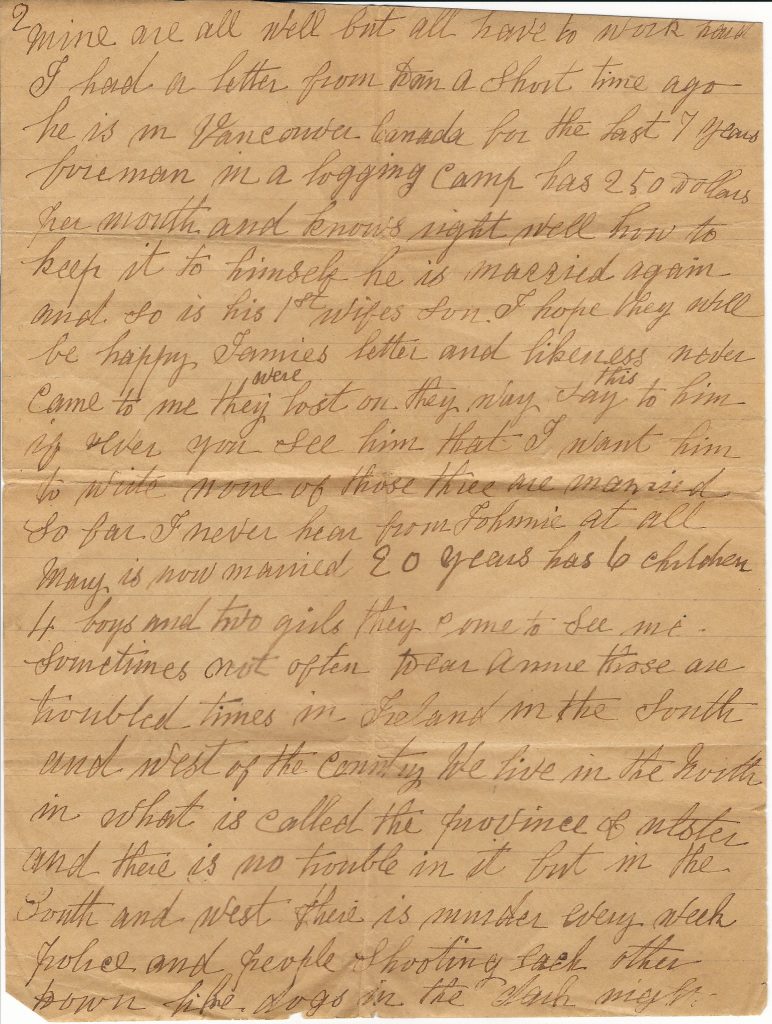 2
mine are all well but all have to work hard
I had a letter from Dan a short time ago
he is in Vancouver Canada for the last 7 years
foreman in a logging camp has 250 Dollars
per month and knows right well how to
keep it to himself he is married again
and so is his 1st wifes son. I hope they will
be happy Jamies letter and likeness never
came to me they were lost on they way say this to him
if ever you see him that I want him
to write none of those three are married
so far I never hear from Johnnie at all
Mary is now married 20 years has 6 children
4 boys and two girls they come to see me
sometimes not often Dear Annie those are
troubled times in Ireland in the South
and west of the country We live in the North
in what is called the province of ulster
and there is no trouble in it but in the
South and west there is murder every week
police and people shooting each other
Down like dogs in the dark night